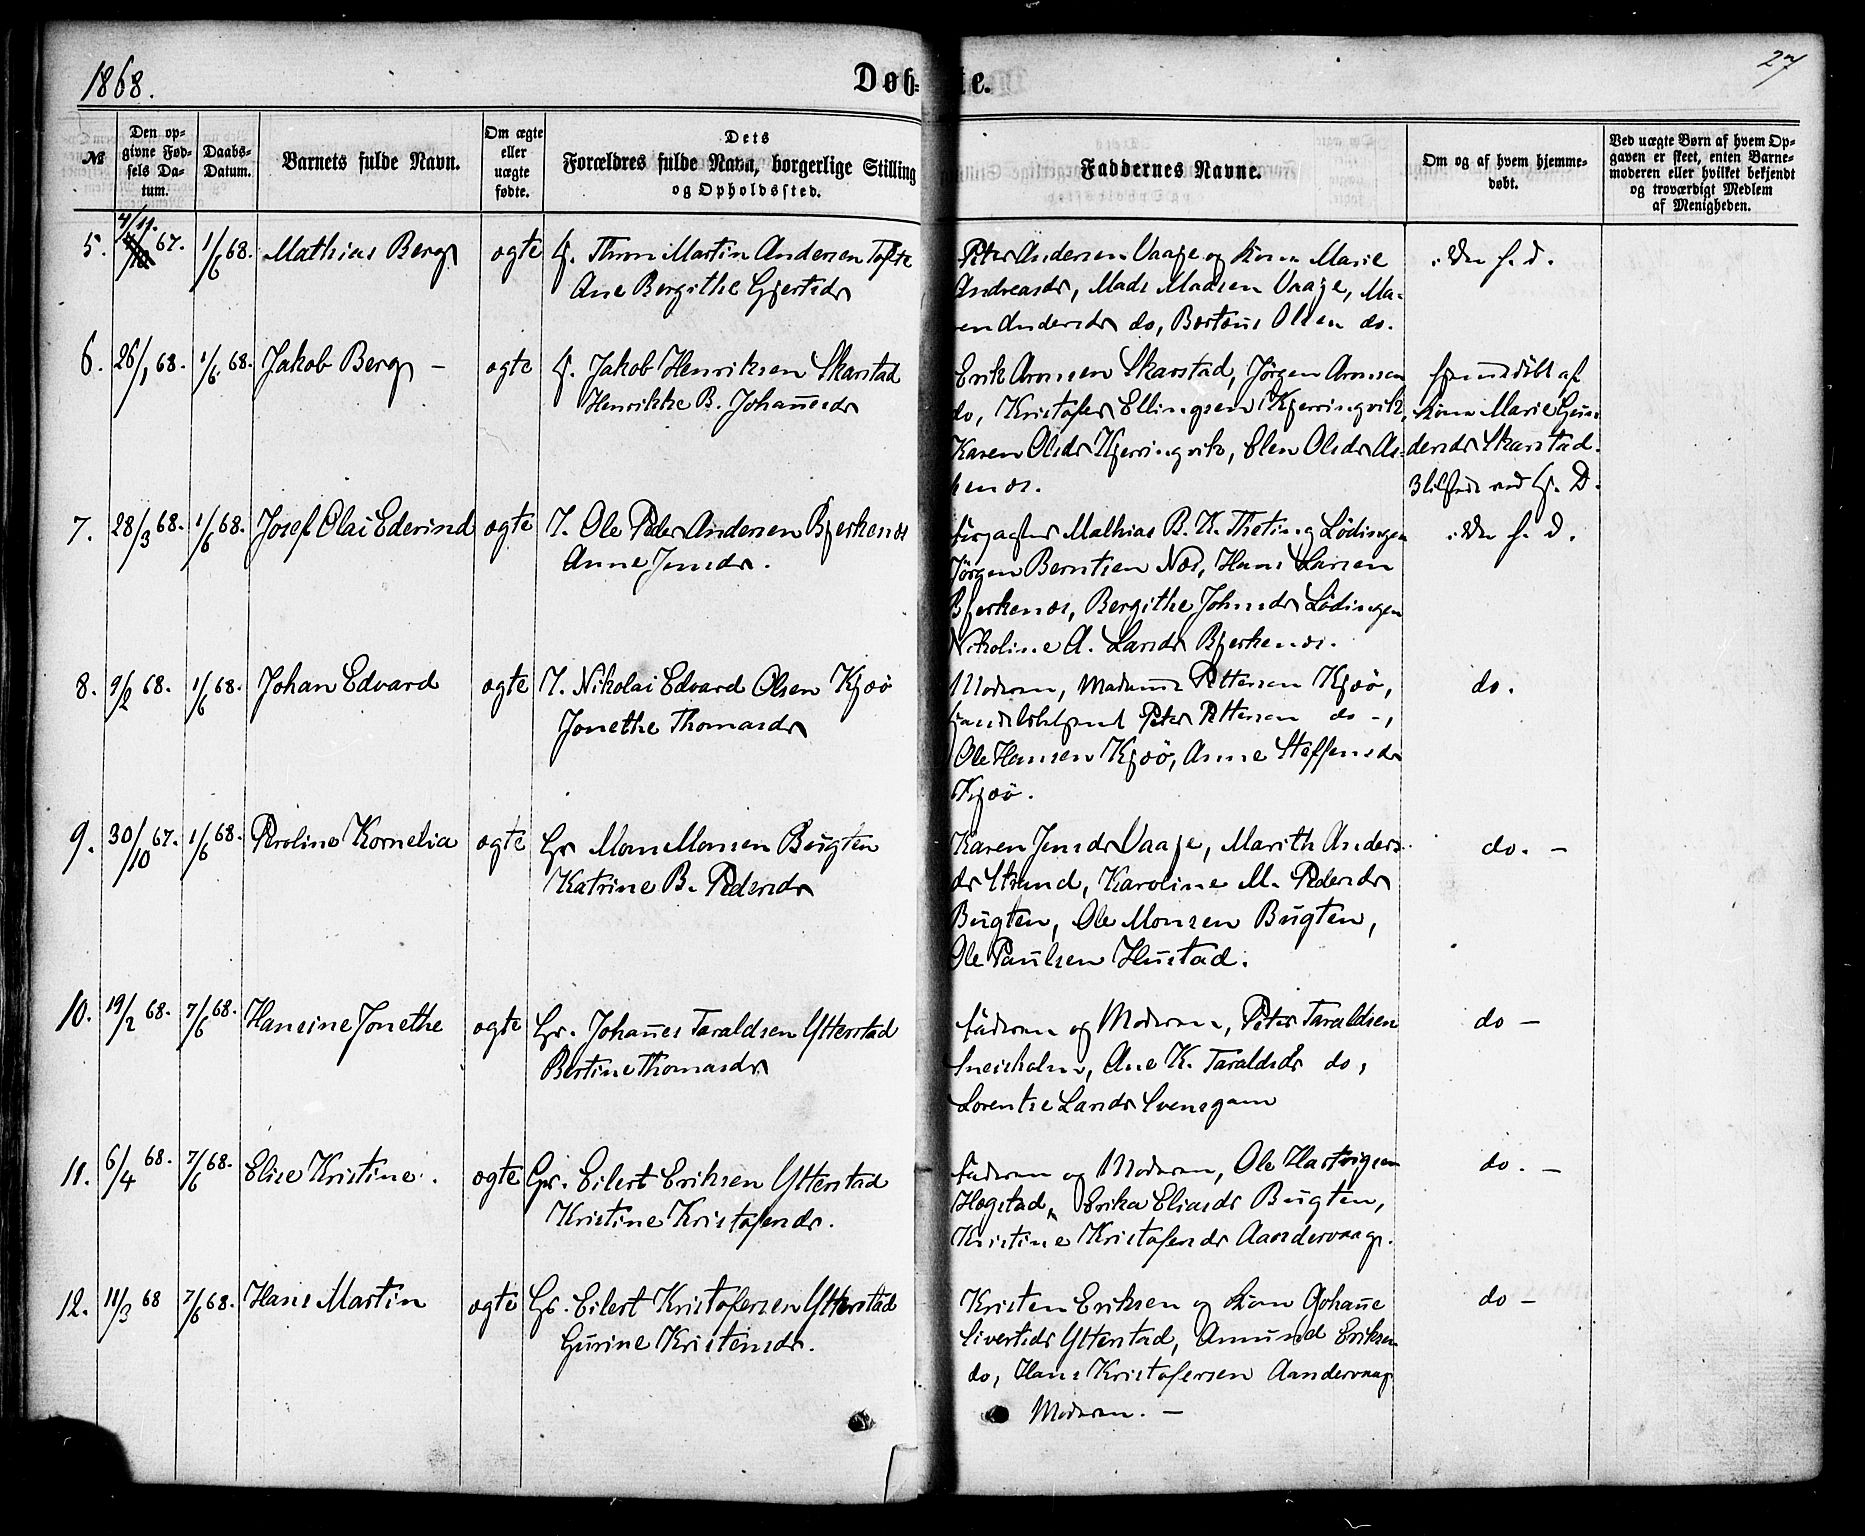 1868.
Døbte.
27
№
Den opgivne Fødsels Datum.
Daabs-Datum.
Barnets fulde Navn.
Om ægte eller uægte fødte.
Dets Forældres fulde Navn, borgerlige Stilling og Opholdssted.
Faddernes Navne.
Om og af hvem hjemmedøbt.
Ved uægte Børn af hvem Opgaven er skeet, enten Barnemoderen eller hvilket bekjendt og troværdigt Medlem af Menigheden.
5. 4/11 67. 1/6 68. Mathias Berg ægte Thron Martin Andersen Tofte
Ane Bergithe Gjertsdr
Peter Andersen Vaage og Kone Marie
Andreasdr, Mads Madsen Vaage, Ma-
ren Andersdr do, Berteus Olsen do.
6. 26/1 68. 1/6 68. Jakob Berg - ægte Jakob Henriksen Skarstad
Henrikke B. Johannesdr
Erik Aronsen Skarstad, Jørgen Aronsen
do, Kristofer Ellingsen Kjerringvik,
Karen Olsdr Kjerringvik, Elen Olsdr
hjemmedøbt af
Kone Marie
Skarstad.
7. 28/3 68. 1/6 68. Josef Olai Ederind ægte I. Ole Peder Andersen Bjerkenæs
Anne Jensdr.
Mathias B. K. Theting Lödingen
Jørgen Berntsen Næs, Hans Larsen
Bjerkenæs, Bergithe Johnsdr Lödingen
Nikoline A. Larsdr Bjerkenæs.
8. 9/2 68. 1/6 68. Johan Edvard ægte I. Nikolai Edvard Olsen Kjæö
Jonethe Thomasdr
Moderen, Madame Pettersen Kjæö,
Peter Pettersen do -,
Ole Hansen Kjæö, Anne Steffensdr
Kjæö.
do.
9. 30/10 67. 1/6 68. Peroline Kornelia ægte Gr Mons Monsen Bugten
Katrine B. Pedersdr
Karen Jensdr Vaage, Marith Anders-
dr Strand, Karoline M. Pedersdr
Bugten, Ole Monsen Bugten,
Ole Paulsen Hustad.
do. -
10. 19/2 68. 7/6 68. Hansine Jonethe ægte Gr. Johannes Taraldsen Ytterstad
Bertine Thomasdr
Faderen og Moderen, Peter Taraldsen
Sneisholm, Ane K. Taraldsdr do,
Lorentse Larsdr Svensgam
do -
11. 6/4 68. 7/6 68. Elise Kristine. ægte Gr. Eilert Eriksen Ytterstad
Kristine Kristofersdr.
Faderen og Moderen, Ole Hartvigsen
Hægstad, Erika Eliasdr Bugten,
Kristine Kristofersdr Aandervaag.
do. -
12. 11/3 68 7/6 68. Hans Martin ægte Gr. Eilert Kristofersen Ytterstad
Gurine Kristensdr.
Kristen Eriksen og Kone Johanne
Sivertsdr Ytterstad, Amund Eriksen
do, Hans Kristofersen Aandervaag
Moderen. -
do -